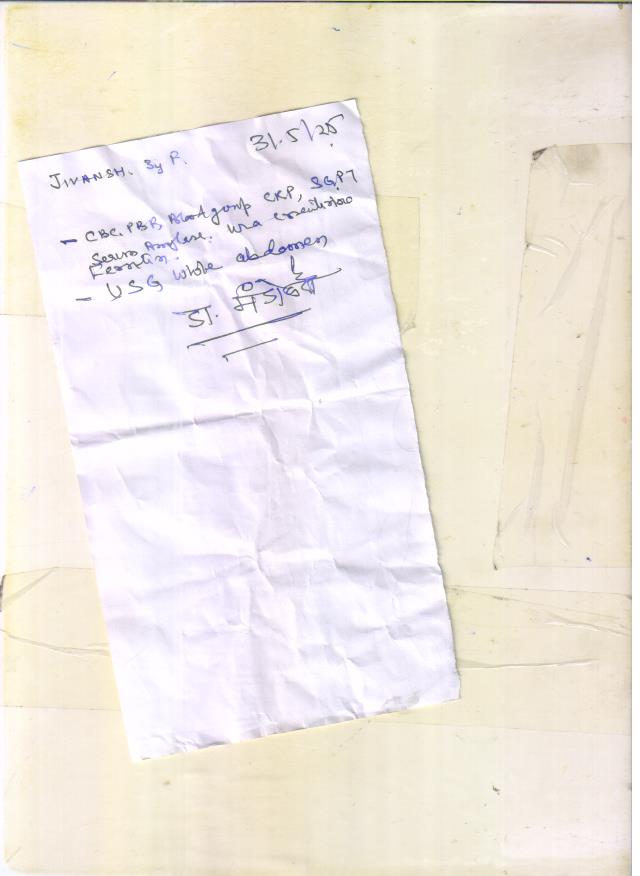 31.5/25
JIVANSH. 5y
- CBC. PBB Blood group CRP, SGPT
Serum Amylase. Urea creatinine
Ferritin.
- USG whole abdomen
डा.